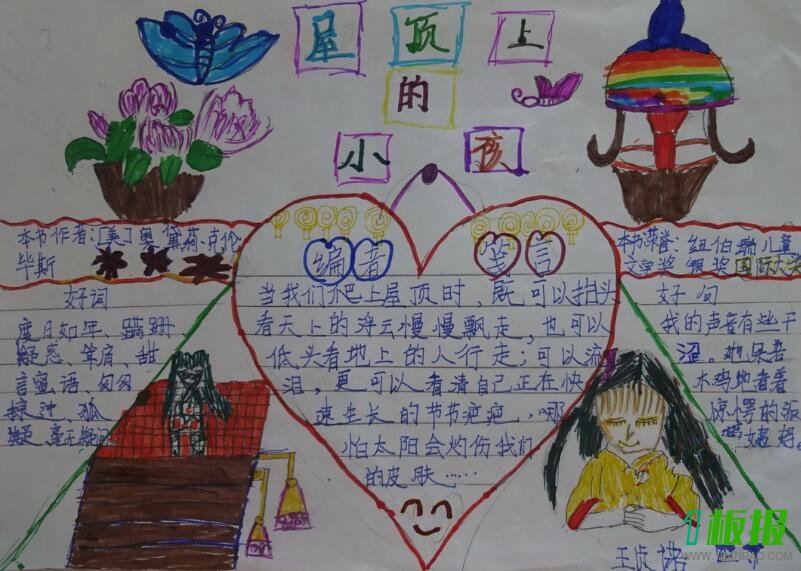 屋顶上
的
小孩
本书作者:[美]奥黛莉·克伦
毕斯
本书荣誉:纽伯瑞儿童
文学奖 银奖 国际大奖
编者笺言
当我们爬上屋顶时,既可以抬头
看天上的浮云慢慢飘走,也可以
低头看地上的人行走;可以流
泪,更可以看清自己正在快
速生长的节节疤疤,哪
怕太阳会灼伤我们
的皮肤……
好词
度日如年、蹒跚
疑惑、耸肩、甜
言蜜语、匆匆
好句
我的声音有些干
涩。她呆若
木鸡地看着
惊愕的
王贞诺
板报